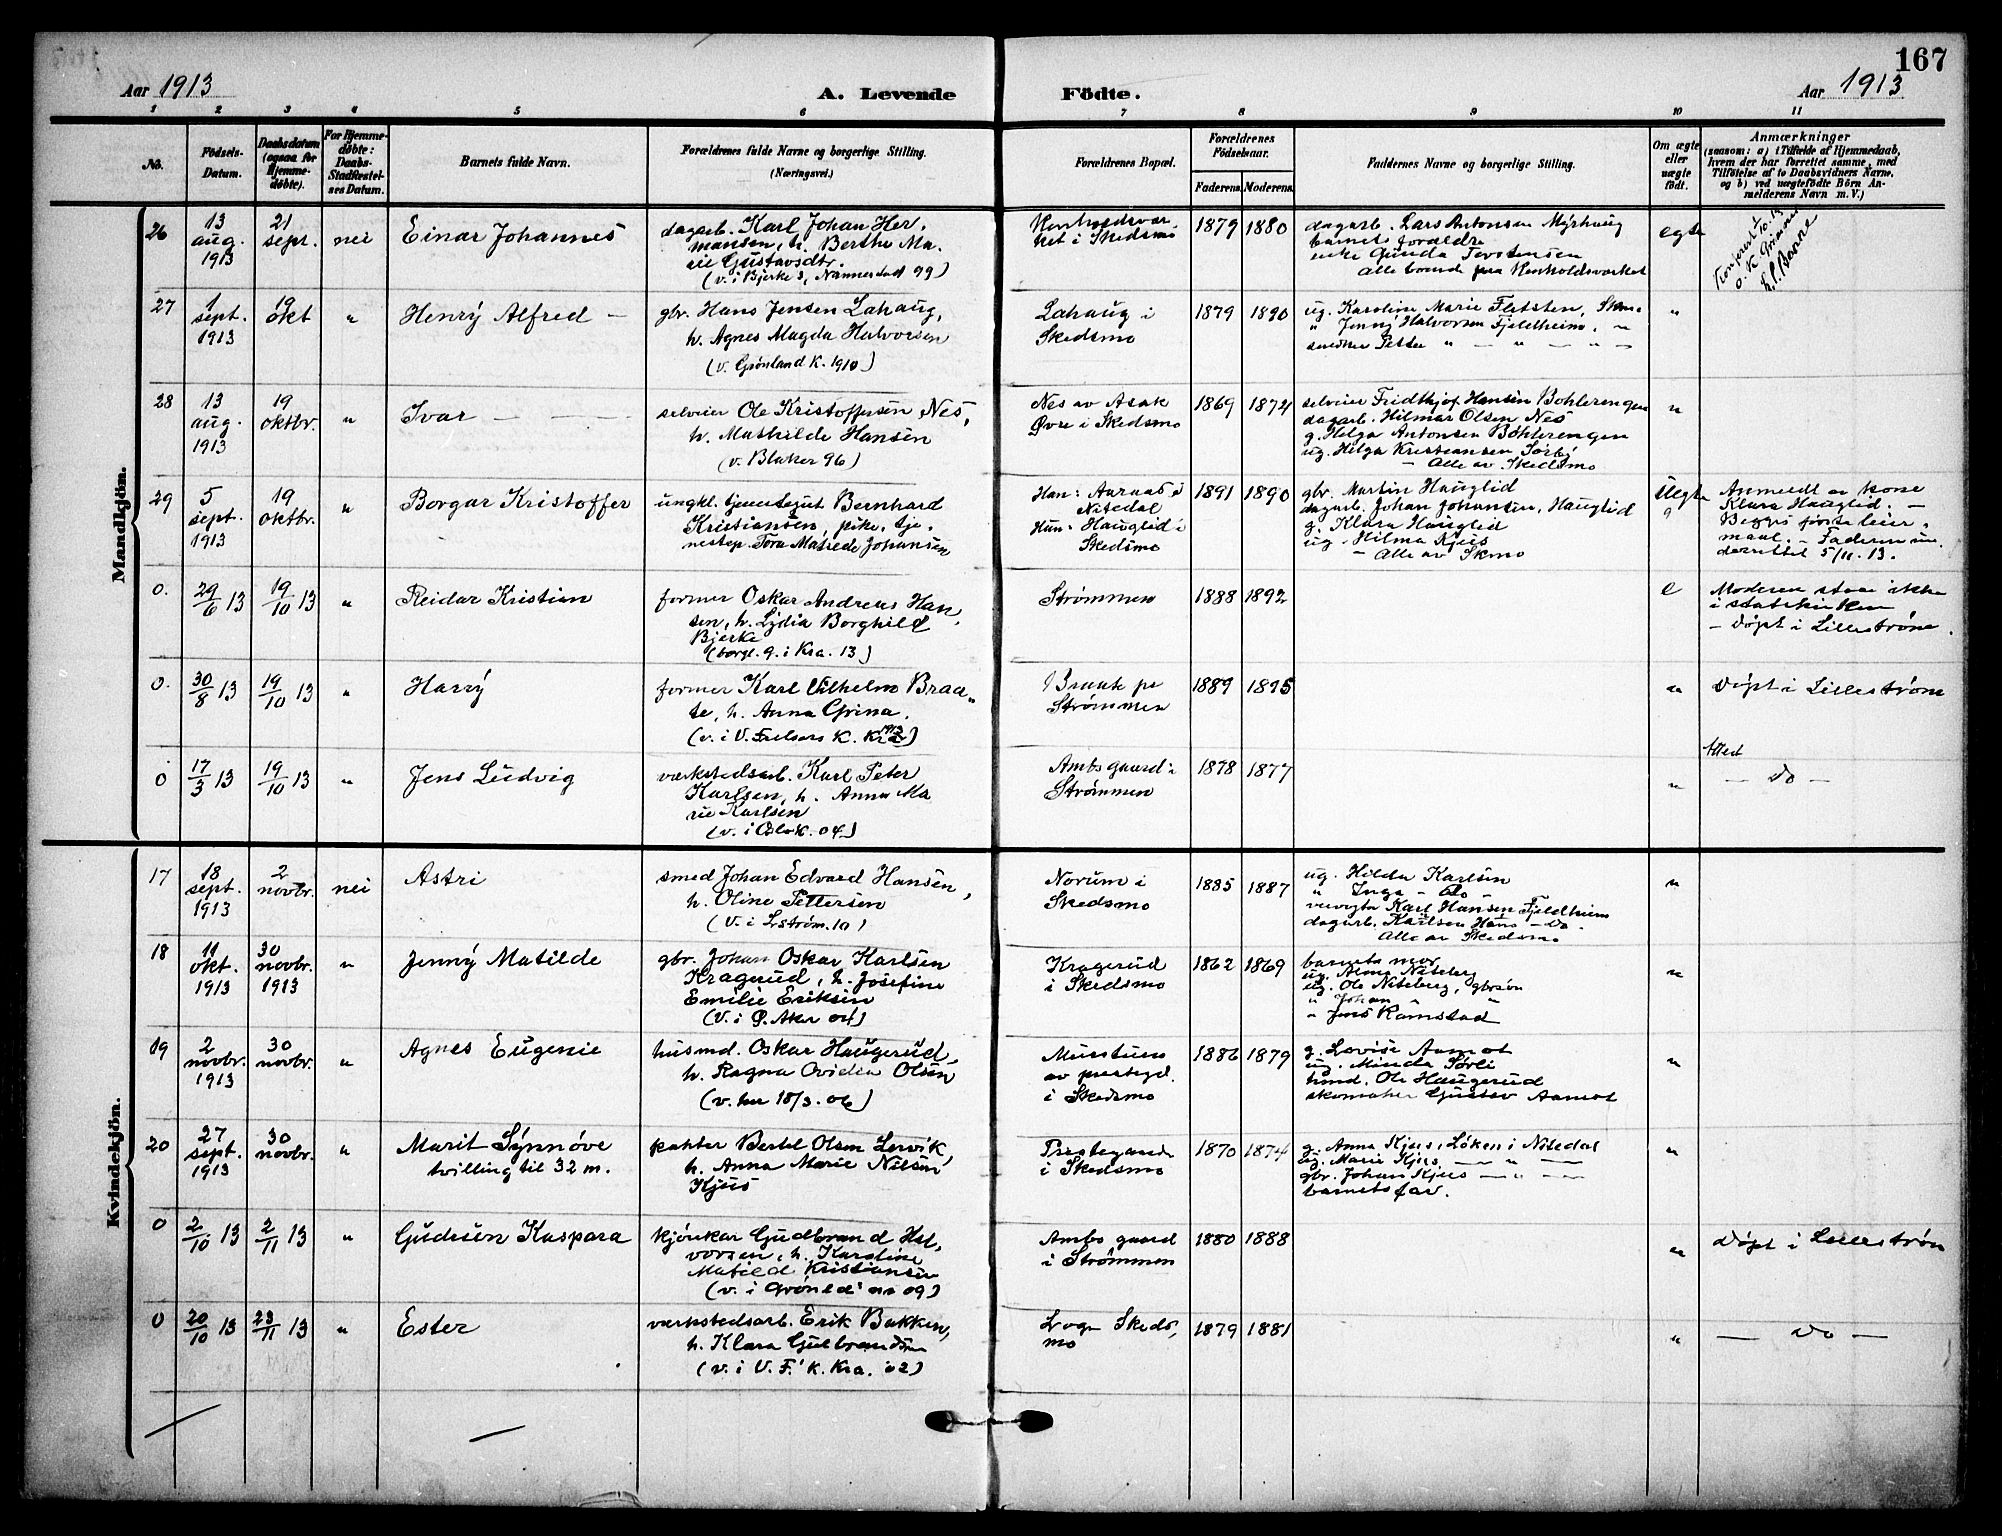 167
Aar 1913
A. Levende Födte.
Aar 1913
1 2 3 4 5 6 7 8 9 10 11
No.
Födsels-Datum.
Daabsdatum (ogsaa for Hjemme-döbte).
For Hjemme-döbte: Daabs-Stadfæstel-ses Datum.
Barnets fulde Navn.
Forældrenes fulde Navne og borgerlige Stilling.
(Næringsvei.)
Forældrenes Bopæl.
Forældrenes Födselsaar.
Faderens. Moderens.
Faddernes Navne og borgerlige Stilling.
Om ægte eller uægte födt.
Anmærkninger
(saasom: a) i Tilfælde af Hjemmedaab,
hvem der har forrettet samme, med
Tilföielse af to Daabsvidners Navne,
og b) ved uægtefödte Börn An-
melderens Navn m. V.)
Mandkjön.
26 13 aug. 1913 21 sept. nei Einar Johannes
dagarb. Karl Johan Her-
mansen, h. Berthe Ma-
rie Gustavsdtr.
(v. i Bjerke s, Nannestad 99)
i Skedsmo
1879 1880
dagarb. Lars Antonsen Myrhaug
barnets forældre
enke Gunda Torstensen
alle boende paa
egte
27 1 sept. 1913 19 okt " Henry Alfred —
gbr. Hans Jensen Lahaug,
h. Agnes Magda Halvorsen
(v. Grønland K. 1910)
Lahaug i
Skedsmo
1879 1890
ug. Karoline Marie
" Jenny Halvorsen Fjeldheim, "
" — " — " —
"
28 13 aug. 1913 19 oktbr. " Ivar — — —
selveier Ole Kristoffersen Nes,
h. Mathilde Hansen
(v. Blaker 96)
Nes av Asak
Øvre i Skedsmo
1869 1874
selveier Fridthjof Hansen Bohlerengen
dagarb. Hilmar Olsen Nes
g. Helga Antonsen Bohlerengen
ug. Helga Kristiansen Sørby
— Alle av Skedsmo
"
29 5 sept. 1913 19 oktbr. " Borgar Kristoffer
ungkl. tjenestegut Bernhard
Kristiansen, pike, tje-
nestep. Tora Matilde Johansen
Han: Aaraas i
Nitedal
Hun: Hauglid i
Skedsmo
1891 1890
gbr. Martin Hauglid
dagarb. Johan Johansen, Hauglid
g. Klara Hauglid
ug. Hilma Kjus
— Alle av Skmo
Uegte
Anmeldt av kone
Klara Hauglid. —
Begges første leier-
maal. — Faderen un-
derrettet 5/11. 13.
0. 29/6 13 19/10 13 " Reidar Kristian
former Oskar Andreas Han-
sen, h. Lydia Borghild
Bjerke
(borgl. g. i Kra. 13)
Strømmen
1888 1892
e
Moderen staar ikke
i statskirken
— døpt i Lillestrøm.
0. 30/8 13 19/10 13 " Harry
former Karl Vilhelm Braa-
te, h. Anna Grina.
(v. i V. Frelsers K. Kra 1913)
Braate pr
Strømmen
1889 1895
"
døpt i Lillestrøm
0 17/3 13 19/10 13 " Jens Ludvig
værkstedsarb. Karl Peter
Karlsen, h. Anna Ma
rie Karlsen
(v. i Oslo K. 04)
Ambsgaard i
Strømmen
1878 1877
"
— do —
Kvindekjön.
17 18 sept. 1913 2 novbr. nei Astri
smed Johan Edvard Hansen,
h. Oline Pettersen
(v. i Lstrøm. 10)
Norum i
Skedsmo
1885 1887
ug. Hilda Karlsen
" Inga — do —
Karl Hansen Fjeldheim
dagarb. Karlsen Hans — do.
Alle av Skedsmo
"
18 11 okt. 1913 30 novbr. 1913 " Jenny Matilde
gbr. Johan Oskar Karlsen
Kragerud, h. Josefine
Emilie Eriksen
(v. i Ø. Aker 04)
Kragerud
i Skedsmo
1862 1869
barnets mor
ug. Alma Niteberg
ug. Ole Niteberg, gbrsøn
" Johan " "
" Jens Ramstad
"
19 2 novbr. 1913 30 novbr. " Agnes Eugenie
husmd. Oskar Haugerud,
h. Ragna Ovidia Olsen
(v. her 18/3. 06)
av prestegd.
i Skedsmo
1886 1879
g. Lovise Aamot
ug. Minda Sørli
hmd. Ole Haugerud
skomaker Gustav Aamot
"
20 27 sept. 1913 30 novbr. " Marit Synnøve
tvilling til 32 m.
pakter Bertel Olsen Lervik,
h. Anna Marie Nilsen
Kjus
Prestegaard
i Skedsmo
1870 1874
g. Anna Kjus, Løken i Nitedal
ug. Marie Kjus — " —
gbr. Johan Kjus — " —
barnets far.
"
0 2/10 13 2/11 13 " Gudrun Kaspara
kjørekar Gudbrand Hal-
vorsen, h. Karoline
Matild Kristiansen
(v. i Grønld 09)
Ambs gaard
i Strømmen
1880 1888
"
døpt i Lillestrøm
0 20/10 13 23/11 13 " Ester
værkstedsarb. Erik Bakken,
h. Klara Gulbrandsen
(v. i V. F. K. Kra. 02)
Skeds-
mo
1879 1881
"
— do —